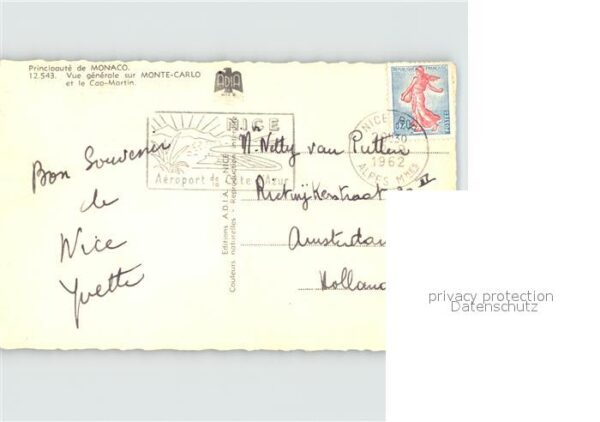 Principauté de MONACO.
12.543. Vue générale sur MONTE-CARLO
et le Cap-Martin.
ADIA
NICE
Aéroport de la Côte d'Azur
Bon Souvenir
de
Nice
Yvette
Editions A.D.I.A. NICE
Couleurs naturelles - Reproduction
REPUBLIQUE FRANÇAISE
0,20
POSTES
NICE R.P.
1962
ALPES MMES
Netty van Putten
Amsterdam
Holland
privacy protection
Datenschutz